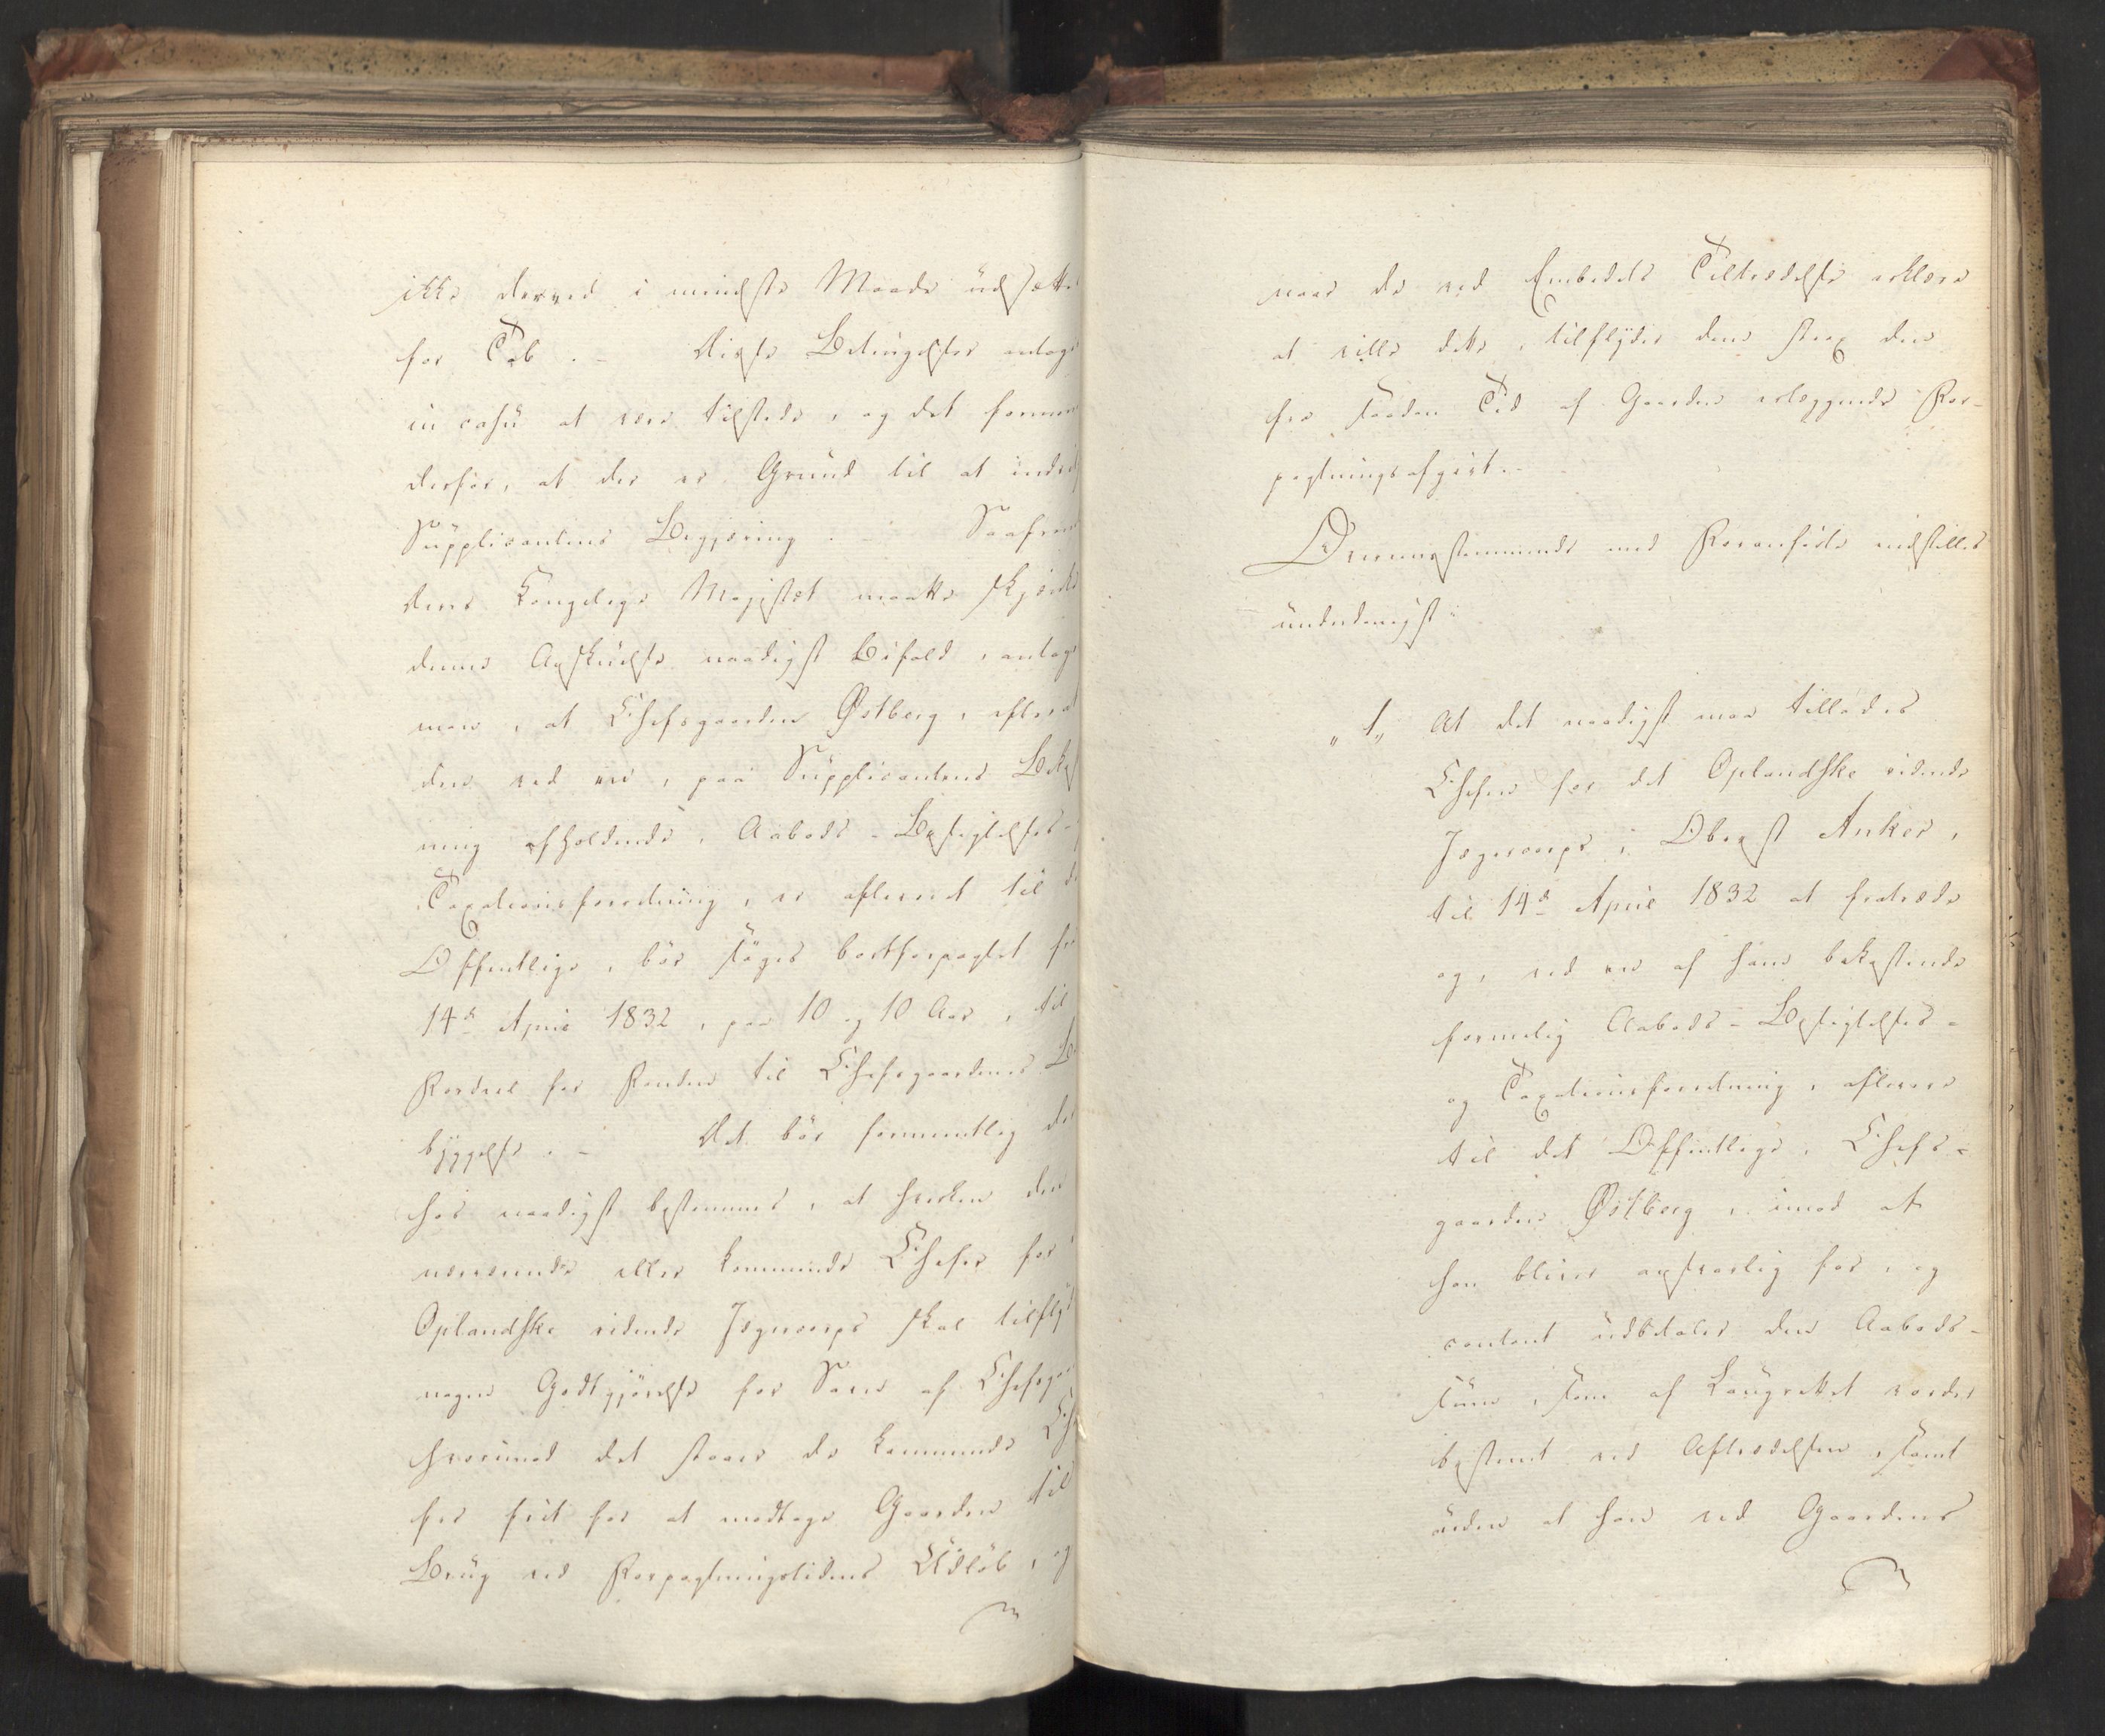 ikke derved i mindste Maade udsættes
for Tab. – Disse Betingelser antages
in casu at være tilstede, og det formenes
derfor, at der er Grund til at indvilge
Supplicantens Begjæring. – Saafremt
Deres Kongelige Majestæt maatte skjænke
denne Anskuelse naadigst Bifald, antager
man, at Chefsgaarden Østberg, efterat
den ved en, paa Supplicantens Bekost
ning afholdende, Aabods-Besigtelses-
Taxationsforretning, er afleveret til det
Offentlige, bør søges bortforpagtet fra
14de April 1832, paa 10 og 10 Aar, til
Fordeel for Fondet til Chefsgaardenes Be
byggelse. – Det bør formeentlig der
hos naadigst bestemmes, at hverken den
nærværende eller kommende Chefer for
Oplandske ridende Jægercorps skal tilflyde
nogen Godtgjørelse for Savn af Chefsgaard
hvorimod det staaer de kommende Che
fer frit for at modtage Gaarden til
Brug ved Forpagtningstidens Udløb, og
naar de ved Embedets Tiltrædelse erklære
at ville dette, tilflyder dem strax den
fra saadan Tid af Gaarden erlæggende For-
pagtningsafgivt. –
Overensstemmende med Foranførte indstilles
underdanigst:
„1„ At det naadigst maa tillades
Chefen for det Oplandske ridende
Jægercorps, Oberst Anker,
til 14de April 1832 at fratræde
og, ved en af ham bekostende
formelig Aabods-Besigtelses-
og Taxationsforretning, aflevere
til det Offentlige, Chefs-
gaarden Østberg, imod at
han bliver ansvarlig for, og
contant udbetaler den Aabods-
Sum, som af Laugrettet vorder
bestemt ved Aftrædelsen, samt
uden at han ved Gaardens